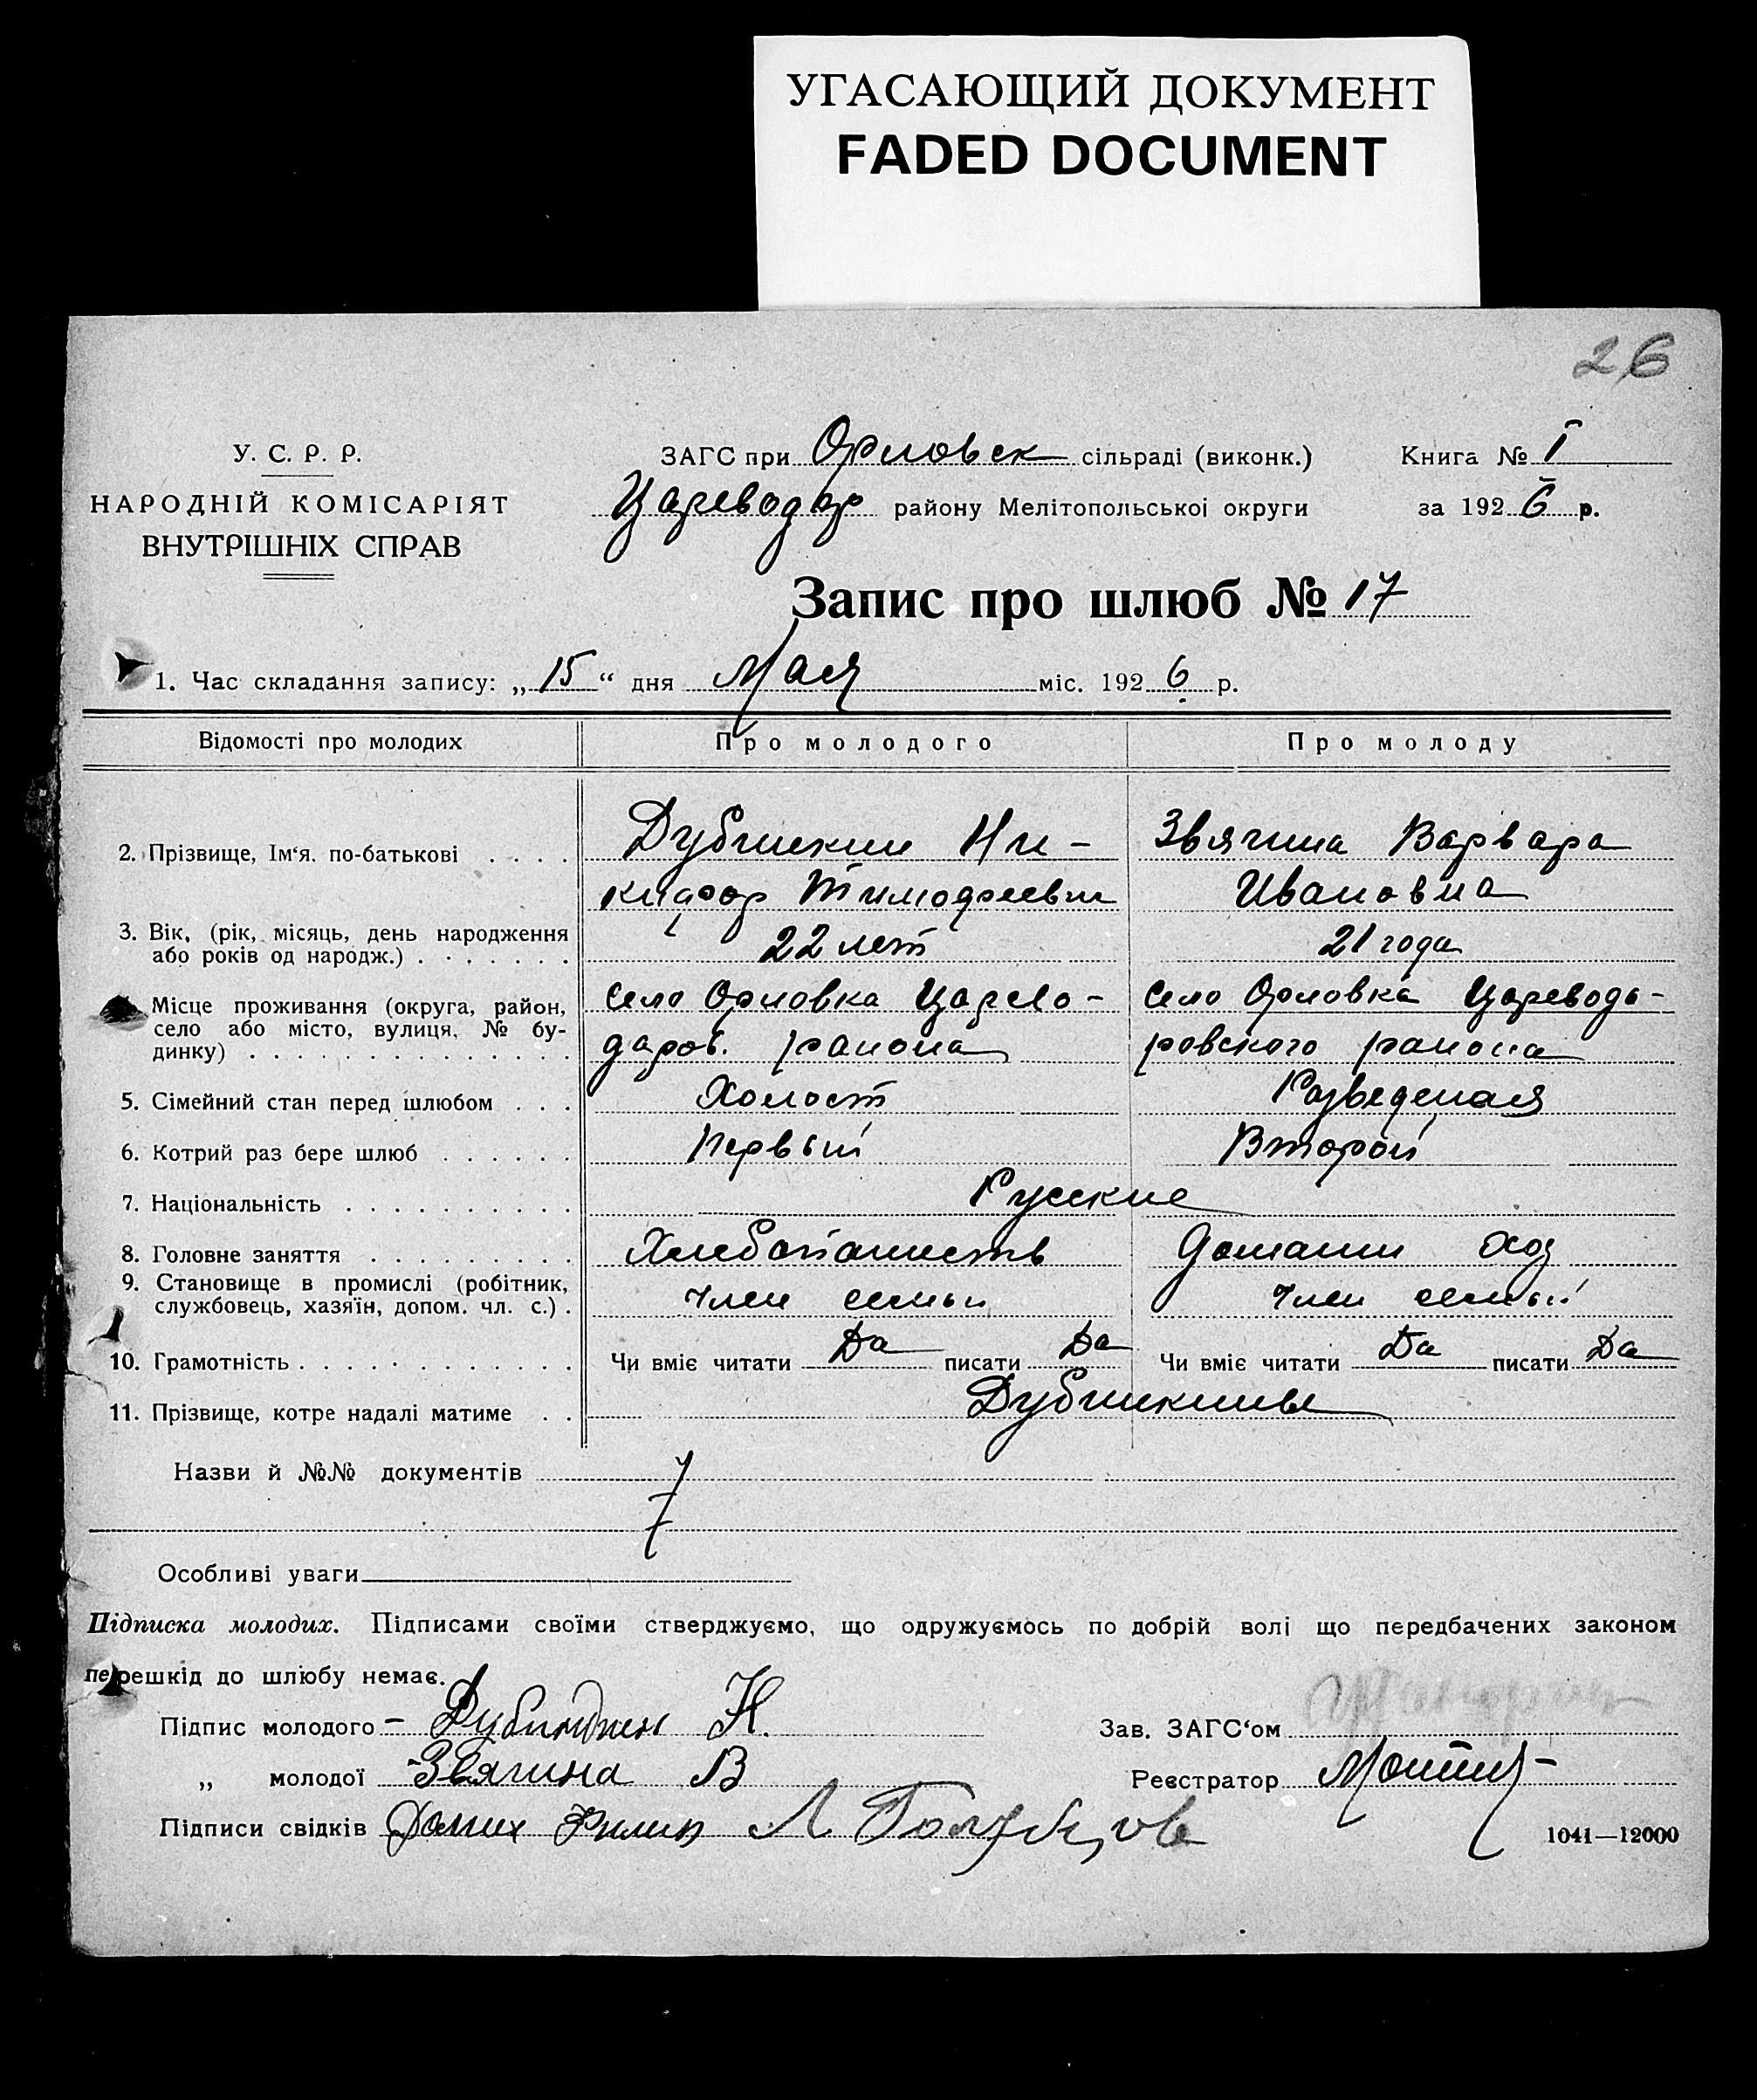 УГАСАЮЩИЙ ДОКУМЕНТ
FADED DOCUMENT
26
У. С. Р. Р.
НАРОДНІЙ КОМІСАРІЯТ
ВНУТРІШНІХ СПРАВ
ЗАГС при Орловск сільраді (виконк.)
Цареводар району Мелітопольської округи
Книга № I
за 1926 р.
Запис про шлюб № 17
1. Час складання запису: „15“ дня Мая міс. 1926 р.
Відомості про молодих Про молодого Про молоду
2. Прізвище, Ім‘я, по-батькові . . . . Ни- Звягина Варвара
кифор Тимофеевич Ивановна
3. Вік, (рік, місяць, день народження
або років од народж.) . . . . . . . 22 лет 21 года
Місце проживання (округа, район,
село або місто, вулиця, № бу-
динку) . . . . . . . . . . . . . .
Село Орловка Царево- Село Орловка Цареводо-
даров. района ровского района
5. Сімейний стан перед шлюбом . . . Холост Разведеная
6. Котрий раз бере шлюб . . . . . . Первый Второй
7. Національність . . . . . . . . . . Русские
8. Головне заняття . . . . . . . . . Хлебопашеств Домашн хоз
9. Становище в промислі (робітник,
службовець, хазяїн, допом. чл. с.) . Член семьи Член семьи
10. Грамотність . . . . . . . . . . . . Чи вміє читати Да писати Да Чи вміє читати Да писати Да
11. Прізвище, котре надалі матиме . .
Назви й №№ документів
Особливі уваги
Підписка молодих. Підписами своїми стверджуємо, що одружуємось по добрій волі що передбачених законом
перешкід до шлюбу немає.
Підпис молодого – Н. Зав. ЗАГС‘ом
„ молодої Звягина В Реєстратор
Підписи свідків Филип Л Голубцов
1041—12000